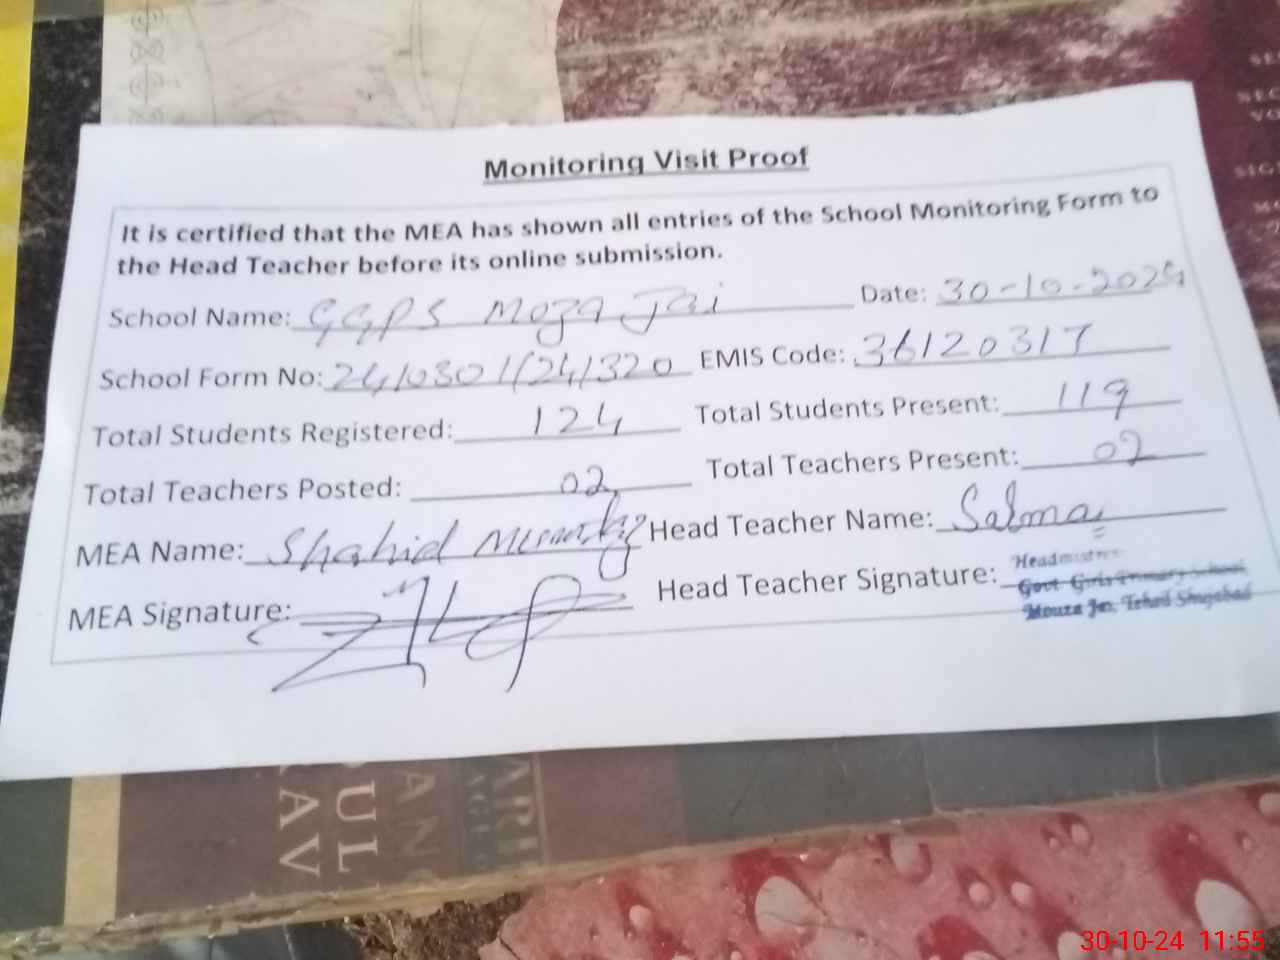 Monitoring Visit Proof
It is certified that the MEA has shown all entries of the School Monitoring Form to
the Head Teacher before its online submission.
School Name: GGPS Moza Jai Date: 30-10-2024
School Form No: 2410301/241320 EMIS Code: 36120317
Total Students Registered: 124 Total Students Present: 119
Total Teachers Posted: 02 Total Teachers Present: 02
MEA Name: Shahid Head Teacher Name: Salma
MEA Signature: Head Teacher Signature:
Headmistress
Govt Girls Primary School
Mouza Jai, Tehsil Shujabad
UL
AV
30-10-24 11:55